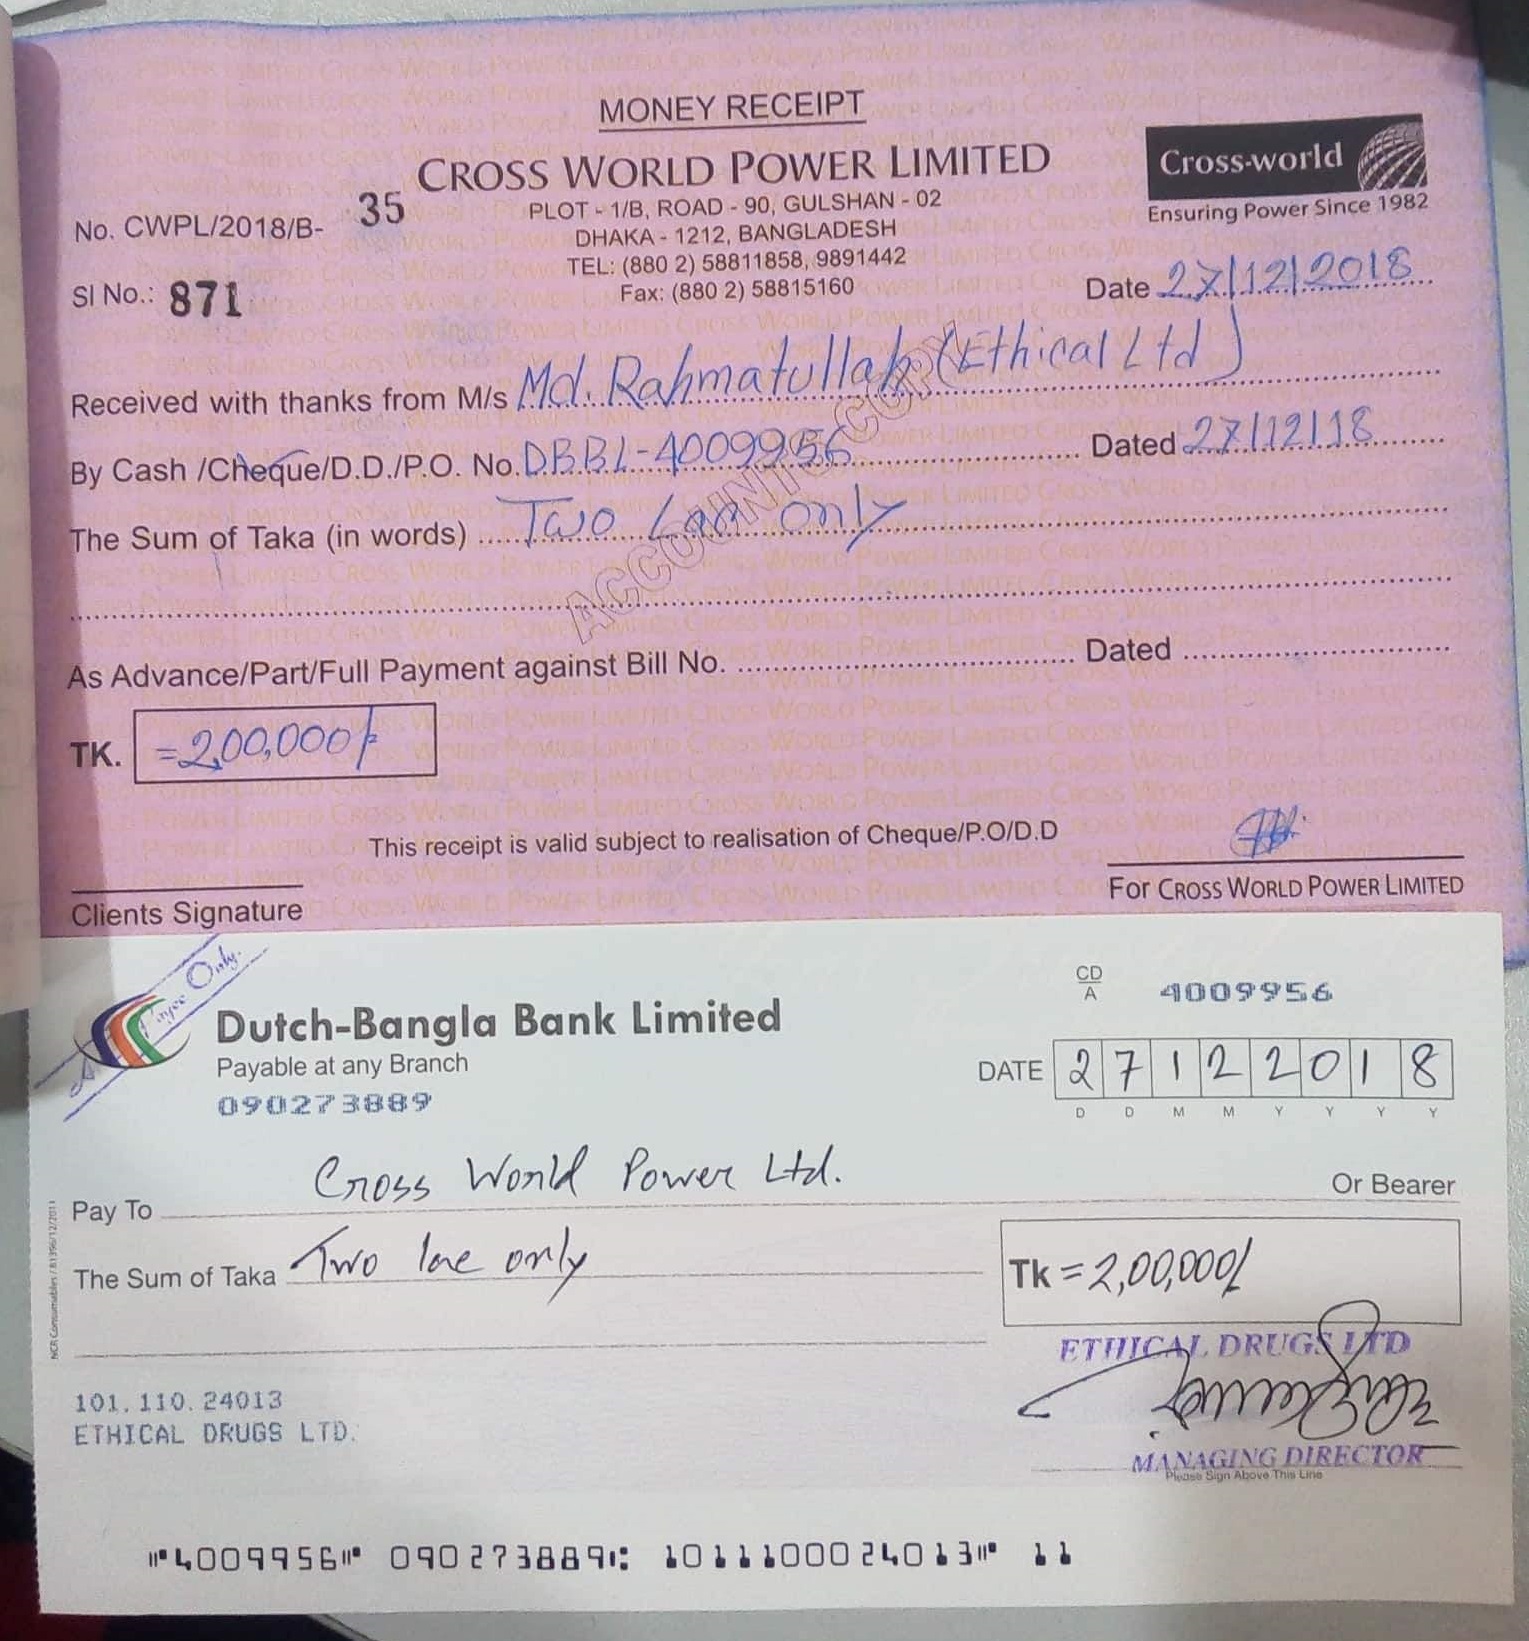 MONEY RECEIPT
CROSS WORLD POWER LIMITED
PLOT - 1/B, ROAD - 90, GULSHAN - 02
DHAKA - 1212, BANGLADESH
TEL: (880 2) 58811858, 9891442
Fax: (880 2) 58815160
Cross-world
Ensuring Power Since 1982
No. CWPL/2018/B- 35
SI No.: 871
Date 27/12/2018
Received with thanks from M/s Md. Rahmatullah (Ethical Ltd)
By Cash /Cheque/D.D./P.O. No. DBBL-4009956 Dated 27/12/18
The Sum of Taka (in words) Two Lac only
ACCOUNTS COPY
As Advance/Part/Full Payment against Bill No. Dated
TK. =2,00,000/=
This receipt is valid subject to realisation of Cheque/P.O/D.D
Clients Signature
For CROSS WORLD POWER LIMITED
Payee Only.
Dutch-Bangla Bank Limited
Payable at any Branch
090273889
CD
A
4009956
DATE 27122018
D D M M Y Y Y Y
Pay To Cross World Power Ltd. Or Bearer
The Sum of Taka Two lac only
Tk =2,00,000/
NCR Consumables / 81396/12/2011
ETHICAL DRUGS LTD
101.110.24013
ETHICAL DRUGS LTD.
MANAGING DIRECTOR
Please Sign Above This Line
⑈4009956⑈ 090273889⑆ 1011100024013⑈ 11